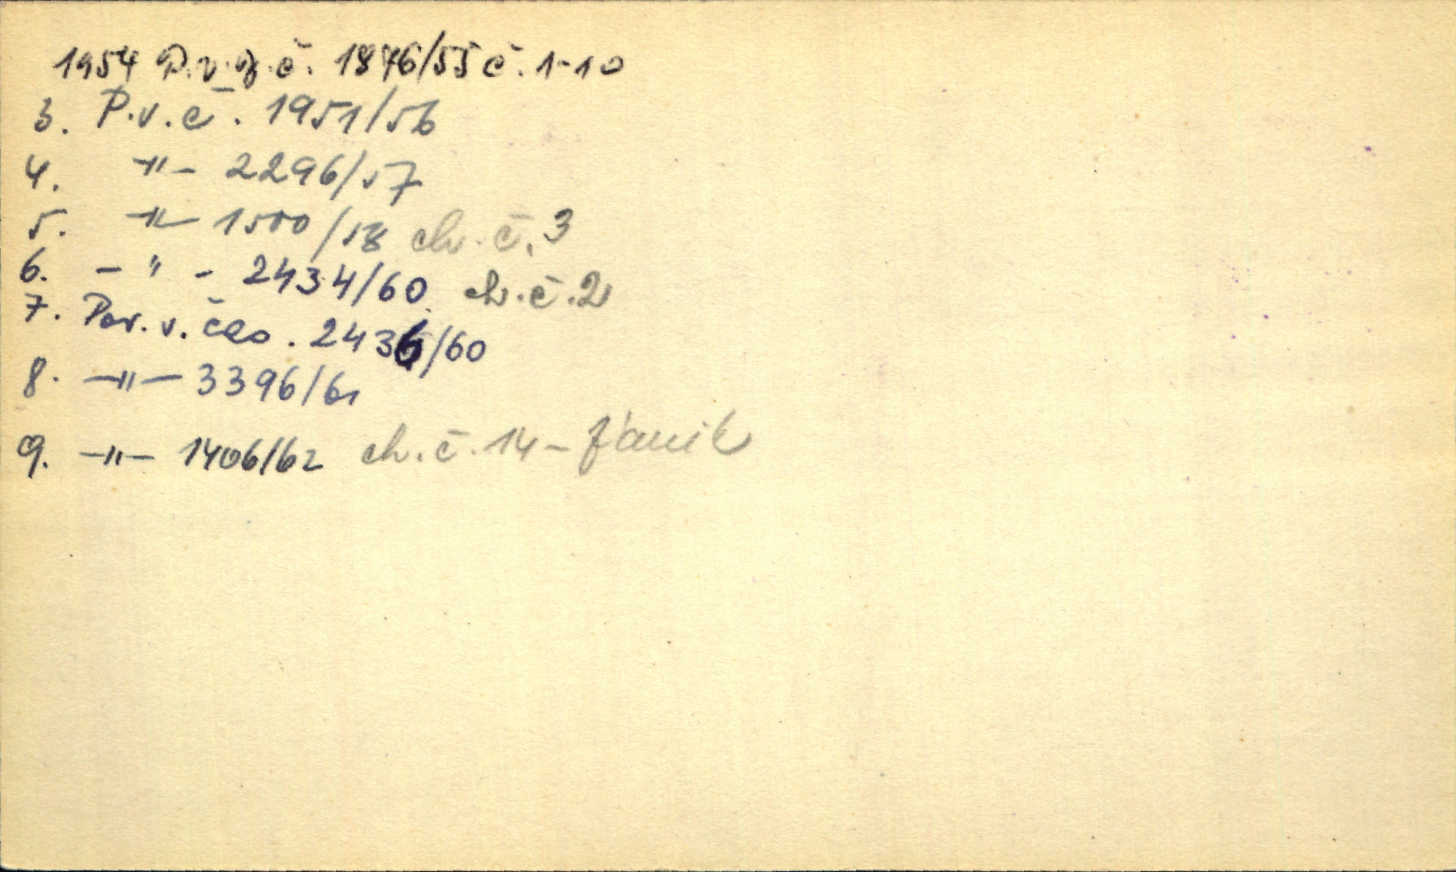 1954 P.v.z.č. 1876/55 č. 1-10
3. P.v.č. 1951/56
4. -"- 2296/57
5. -"- 1500/58 ch.č. 3
6. -"- 2434/60 ch.č.2
7. Por. v. čas. 2436/60
8. -"- 3396/61
9. -"- 1406/62 ch.č.14-